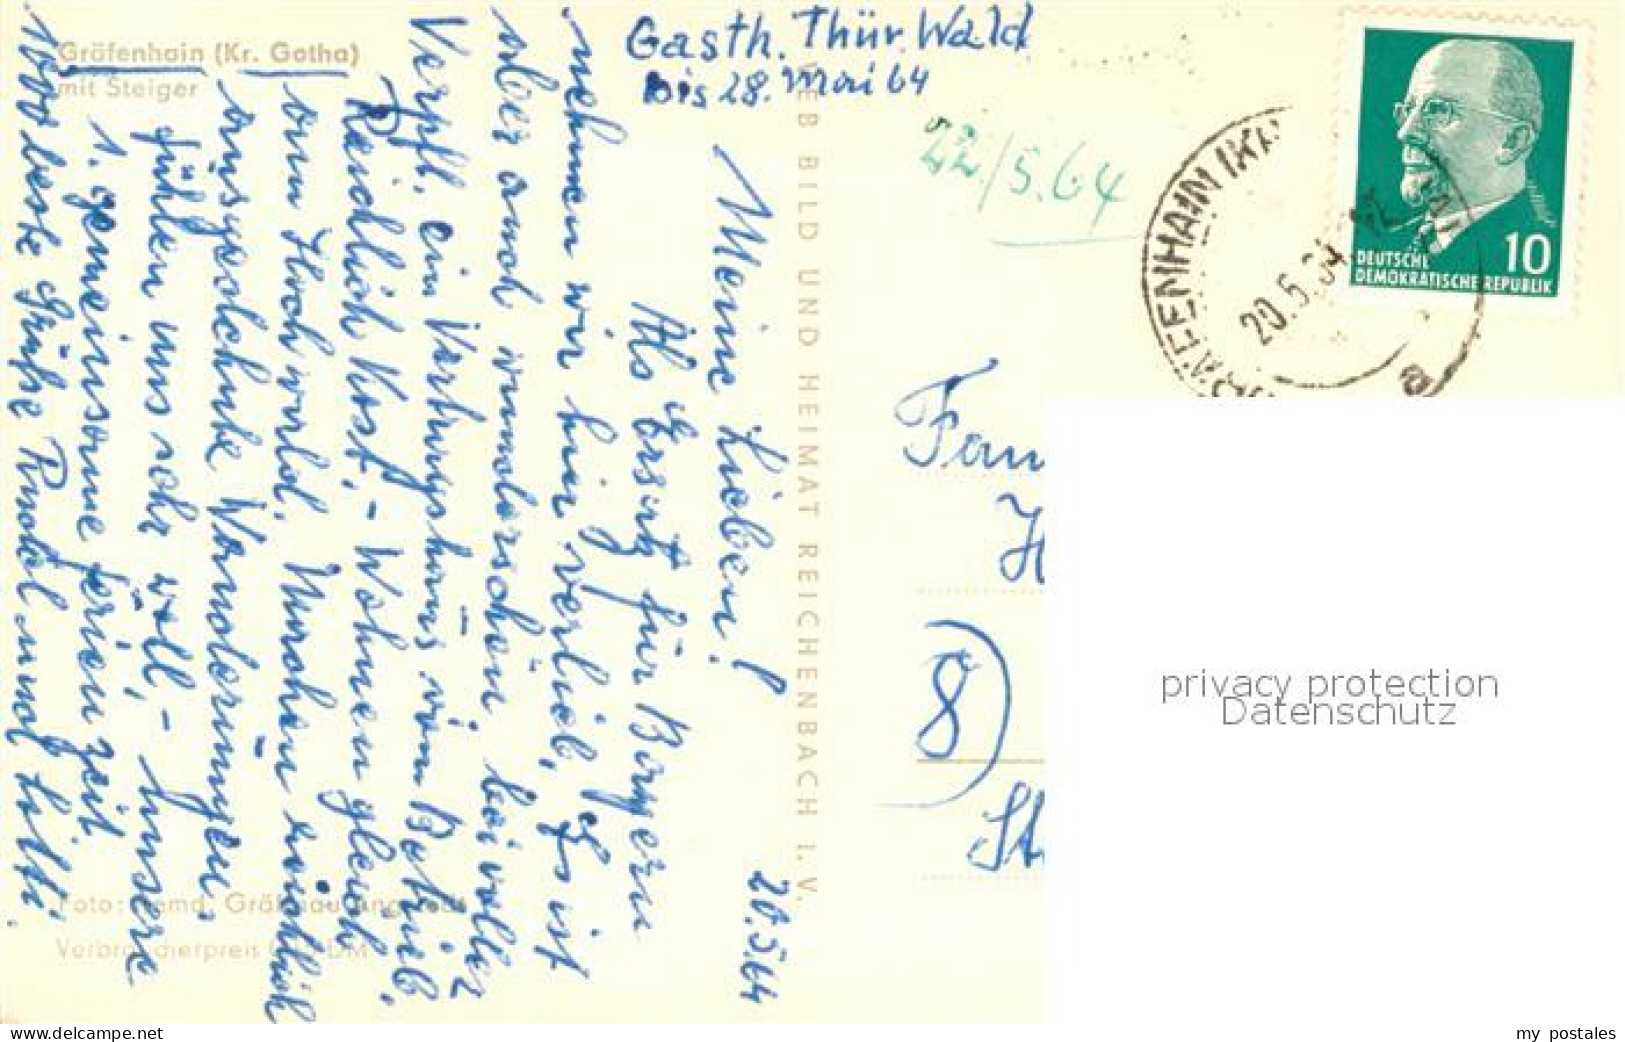 Gräfenhain (Kr. Gotha)
mit Steiger
Gasth. Thür. Wald
bis 28. Mai 64
22/5.64
20.5.64
Meine Lieben!
Als Ersatz für Bürgern
nehmen wir hier verlieb, Es ist
aber auch wunderschön, bei voller
Verpfl. ein Vertragshaus vom Betrieb.
Reichlich Kost, - Wohnen gleich
am Hochwald. Machen reichlich
ausgedehnte Wanderungen,
fühlen uns sehr wohl, - Unsere
1. gemeinsame Ferienzeit
1000 beste Grüße Rudol und
VEB BILD UND HEIMAT REICHENBACH I. V.
Foto:
Verbraucherpreis DM
DEUTSCHE
DEMOKRATISCHE REPUBLIK
10
20.5.64
Fam
H
8
St
privacy protection
Datenschutz
www.delcampe.net
my_postales